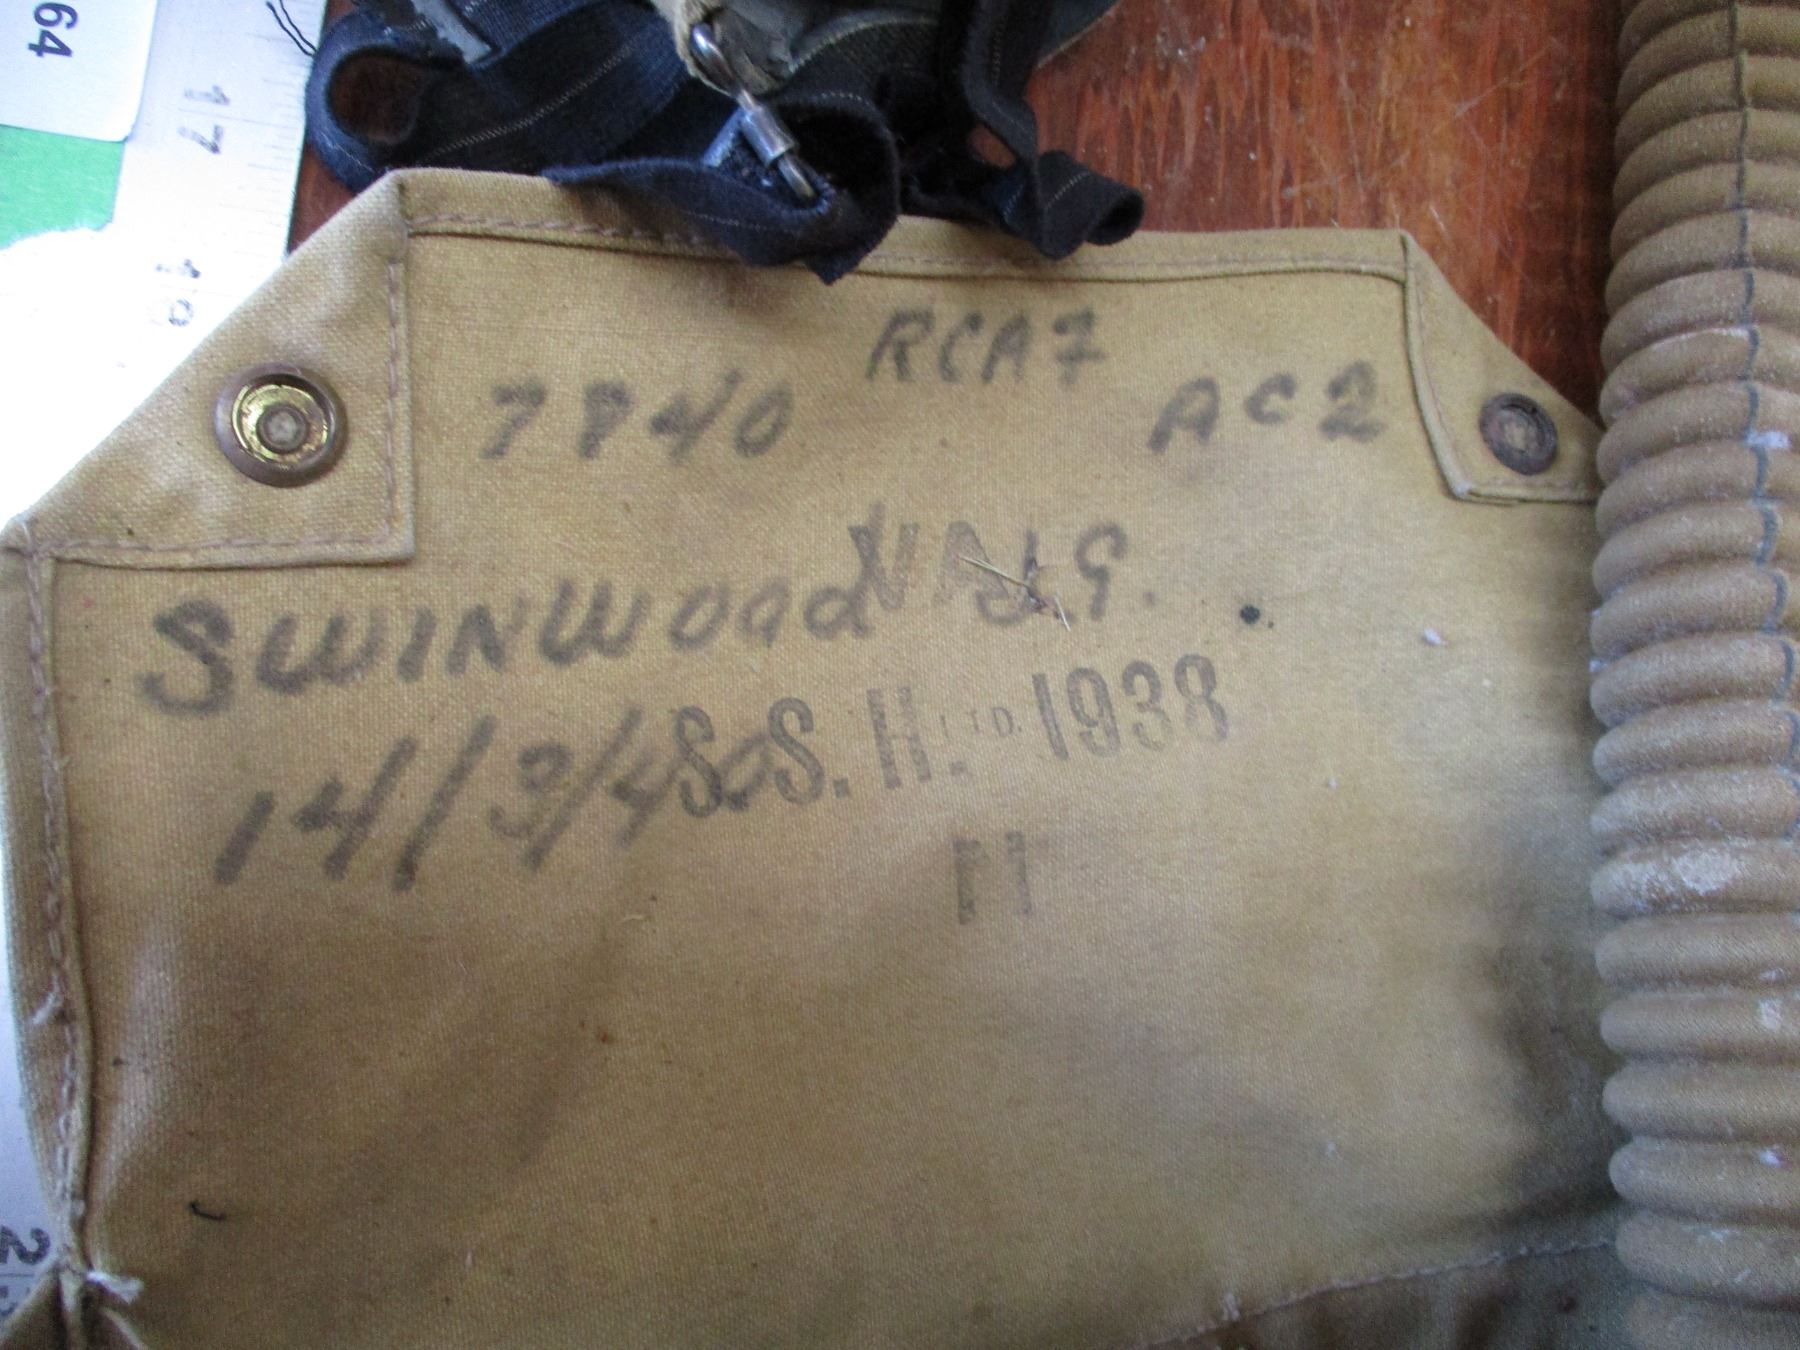 64
17
18
RCAF
7840
AC2
SWINWood J.G.
14/3/40
S.S. H. LTD. 1938